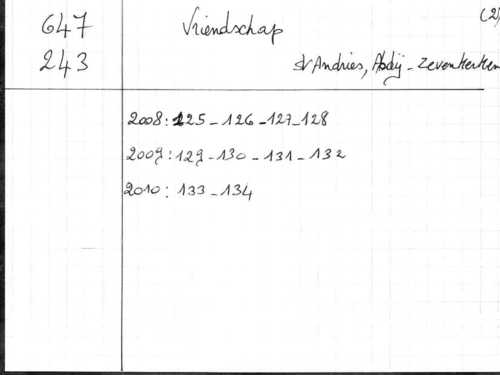 647 Vriendschap (2)
243 St Andries, Abdij - Zevenkerken
2008: 125 - 126 - 127 - 128
2009: 129 - 130 - 131 - 132
2010: 133 - 134